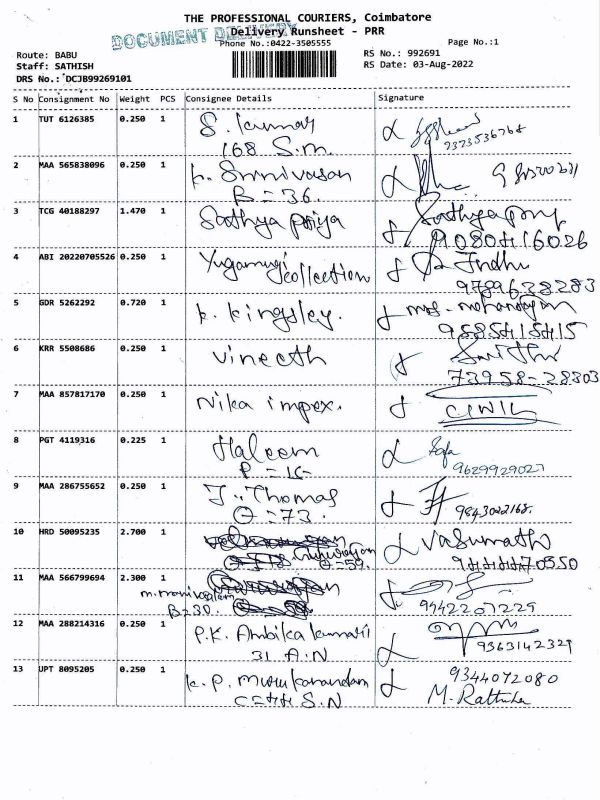 THE PROFESSIONAL COURIERS, Coimbatore
DOCUMENT DELIVERY
Delivery Runsheet - PRR
Phone No.:0422-3505555
Page No.:1
Route: BABU
RS No.: 992691
Staff: SATHISH
RS Date: 03-Aug-2022
DRS No.: DCJB99269101
S No Consignment No Weight PCS Consignee Details Signature
1 TUT 6126385 0.250 1 S. kumar
168 S.m.
2 MAA 565838096 0.250 1 k. Srinivasan
B = 36.
3 TCG 40188297 1.470 1 Sathya priya Sathyapriy
4 ABI 20220705526 0.250 1 Yugamugi Indhu
collection 9789638283
5 GDR 5262292 0.720 1 k. kingsley.
6 KRR 5508686 0.250 1 vineeth
73958-28303
7 MAA 857817170 0.250 1 Nika impex.
8 PGT 4119316 0.225 1 Haleem
9629929027
9 MAA 286755652 0.250 1 J. Thomas
9843022168.
10 HRD 50095235 2.700 1 Vasumathi
11 MAA 566799694 2.300 1
m.manikvalem
B=30. 9942207229
12 MAA 288214316 0.250 1 P.K. Ambika kumari
31 A.N 9363142329
13 UPT 8095205 0.250 1 k. p. 9344072080
S.N M. Rathika